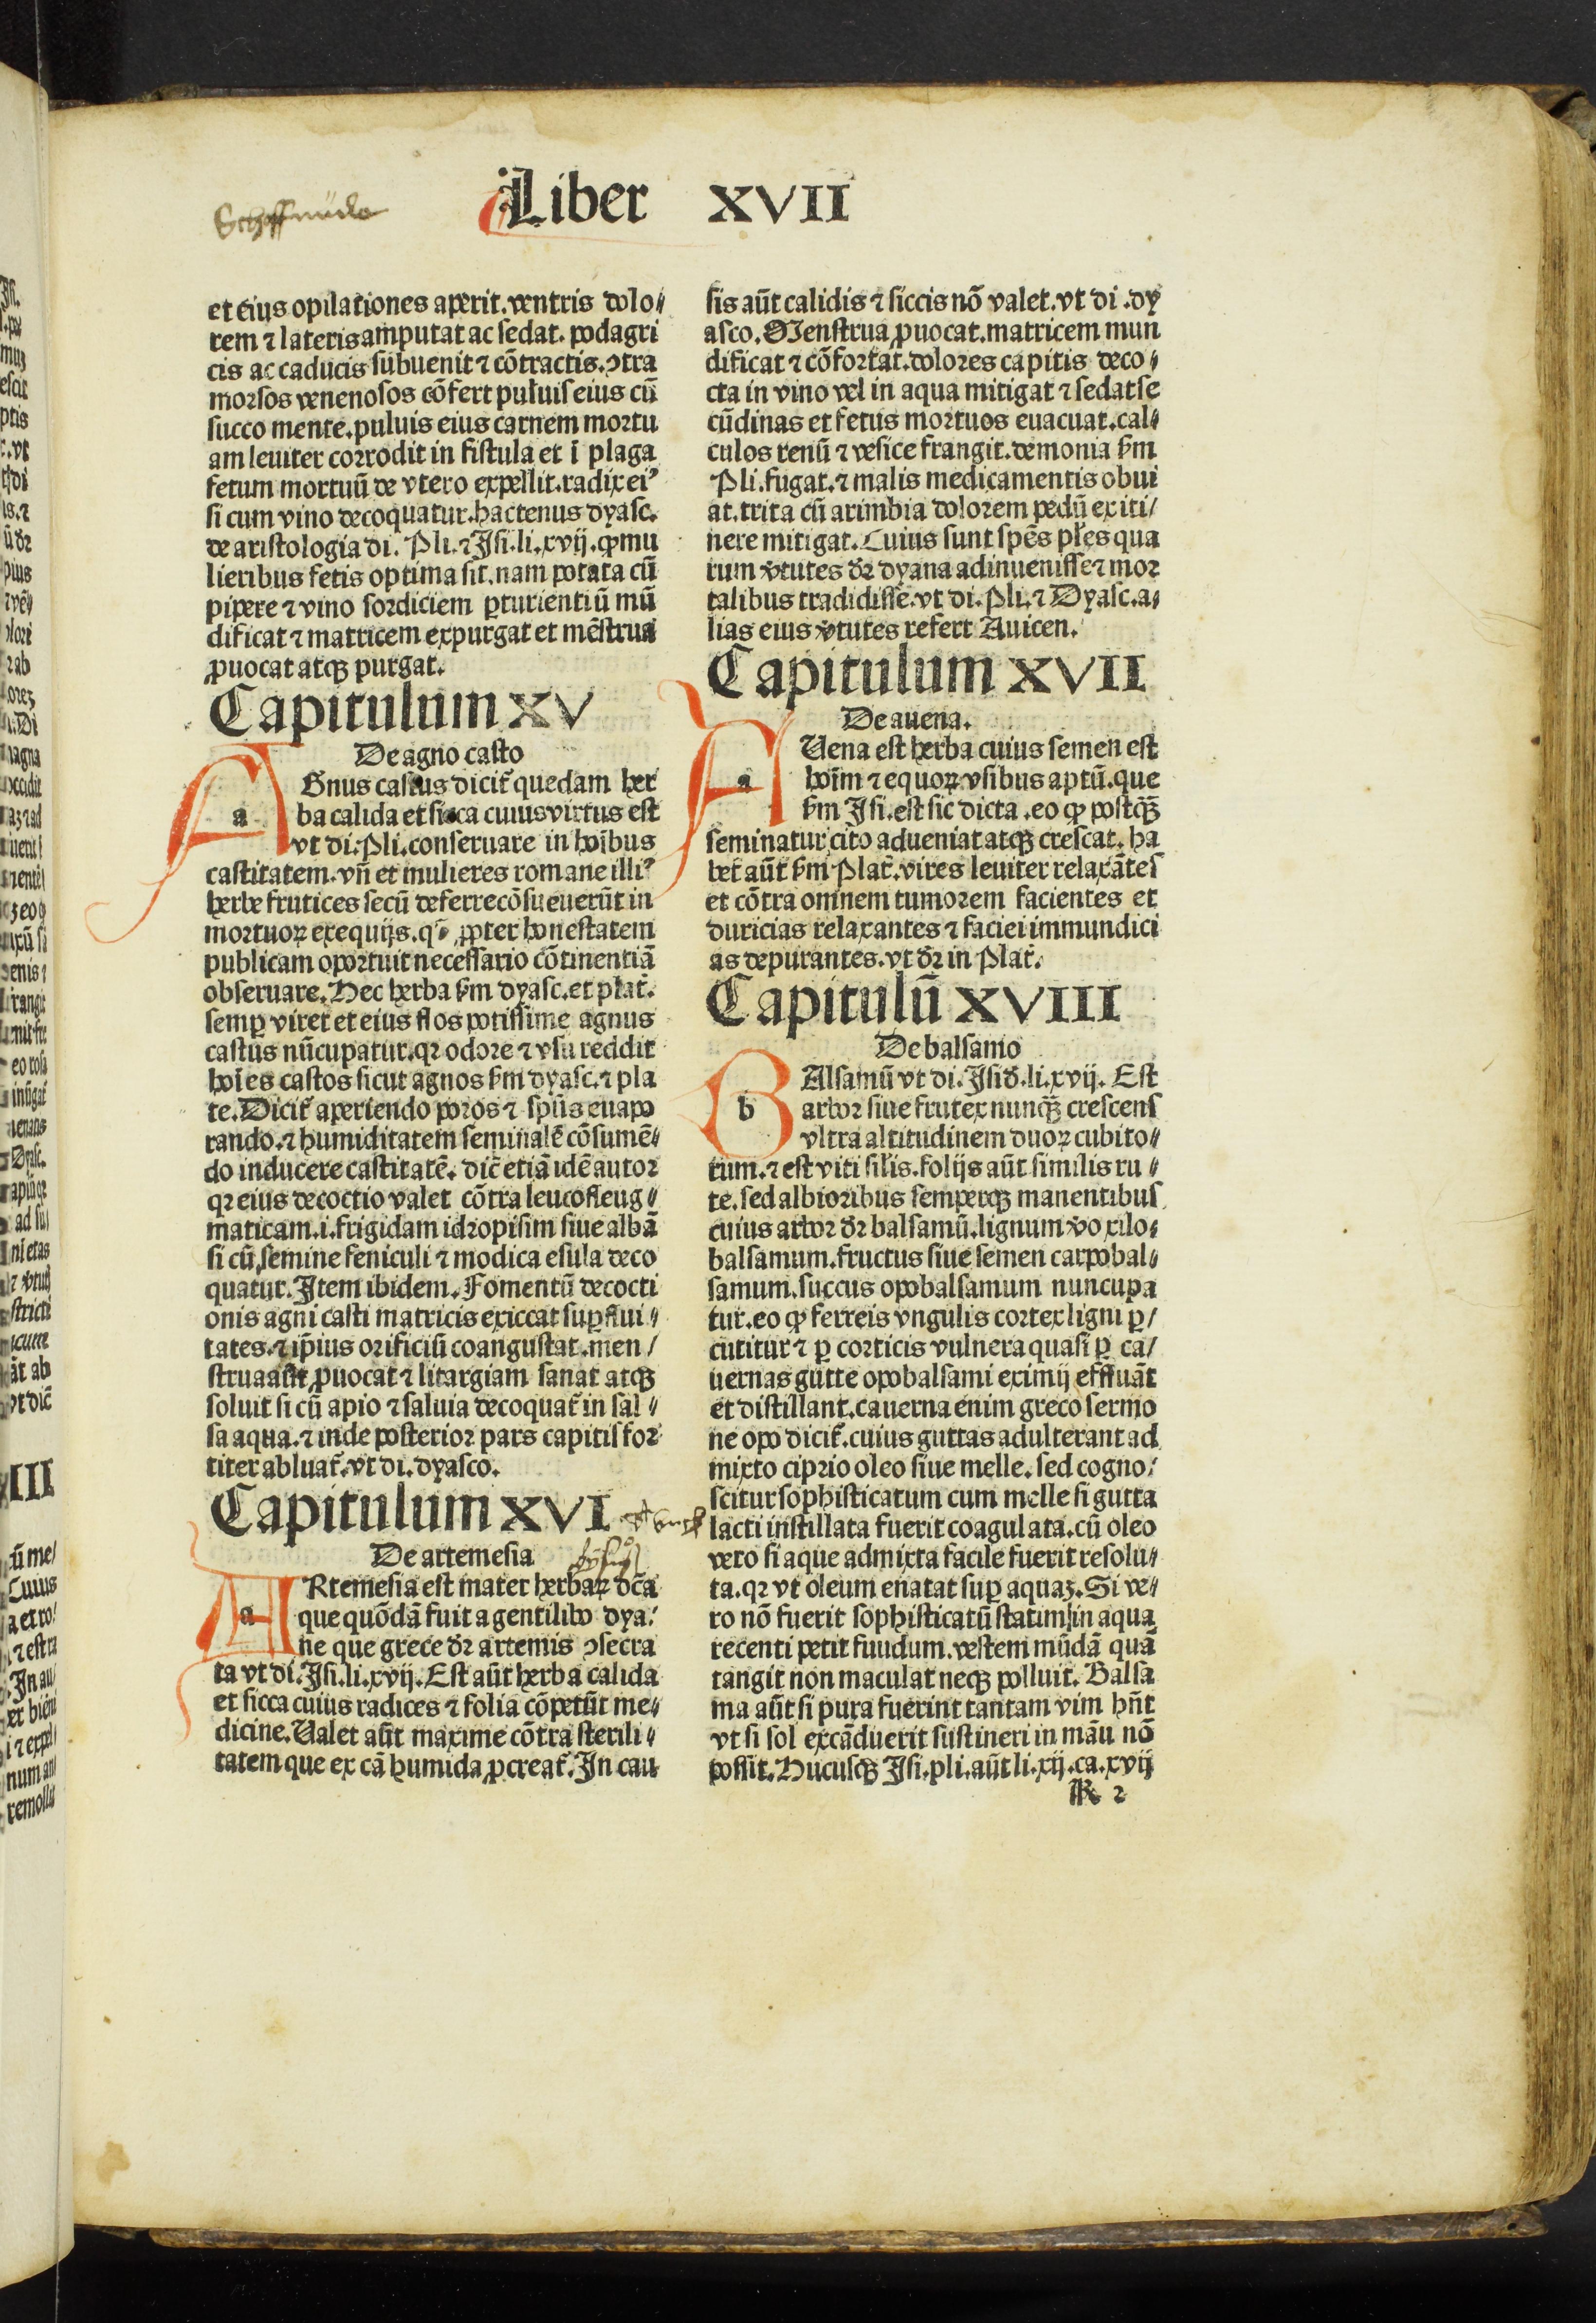 Liber XVII
et eius opilationes aperit. ventris dolo⸗
rem ⁊ lateris amputat ac sedat. podagri
cis ac caducis subuenit ⁊ cōtractis. ↄtra
morsos venenosos cōfert puluis eius cū
succo mente. puluis eius carnem mortu
am leuiter corrodit in fistula et ī plaga
fetum mortuū de vtero expellit. radix eiꝰ
si cum vino decoquatur. hactenus dyasc.
de aristologia di. Pli. ⁊ Isi. li. xvij. ꝙ mu
lieribus fetis optima sit. nam potata cū
pipere ⁊ vino sordiciem ꝑturientiū mū
dificat ⁊ matricem expurgat et mēstrua
ꝓuocat atqꝫ purgat.
Capitulum XV
De agno casto
a Gnus castus dicit̄ quedam her
ba calida et sicca cuius virtus est
vt di. Pli. conseruare in hoībus
castitatem. vn̄ et mulieres romane illiꝰ
herbe frutices secū deferre cōsueuerūt in
mortuoꝝ exequijs. qn̄ ꝓpter honestatem
publicam oportuit necessario cōtinentiā
obseruare. Hec herba ẜm dyasc. et plat̄.
semꝑ viret et eius flos potissime agnus
castus nūcupatur. qꝛ odore ⁊ vsu reddit
hoīes castos sicut agnos ẜm dyasc. ⁊ pla
te. Dicit̄ aperiendo poros ⁊ spūs euapo
rando. ⁊ humiditatem seminalē cōsumē⸗
do inducere castitatē. dic̄ etiā idē autor
qꝛ eius decoctio valet cōtra leucofleug⸗
maticam. i. frigidam idropisim siue albā
si cū semine feniculi ⁊ modica esula deco
quatur. Item ibidem. Fomentū decocti
onis agni casti matricis exiccat suꝑflui⸗
tates. ⁊ ip̄ius orificiū coangustat. men⸗
strua aūt ꝓuocat ⁊ litargiam sanat atqꝫ
soluit si cū apio ⁊ saluia decoquat̄ in sal⸗
sa aqua. ⁊ inde posterior pars capitis for
titer abluat̄. vt di. dyasco.
Capitulum XVI
De artemesia
a Rtemesia est mater herbaꝝ dc̄a
que quōdā fuit a gentilibo dya⸗
ne que grece dr̄ artemis ↄsecra
ta vt di. Isi. li. xvij. Est aūt herba calida
et sicca cuius radices ⁊ folia cōpetūt me⸗
dicine. Ualet aūt maxime cōtra sterili⸗
tatem que ex cā humida ꝓcreat̄. In cau
sis aūt calidis ⁊ siccis nō valet. vt di. dy
asco. Menstrua ꝓuocat. matricem mun
dificat ⁊ cōfortat. dolores capitis deco⸗
cta in vino vel in aqua mitigat ⁊ sedat se
cūdinas et fetus mortuos euacuat. cal⸗
culos renū ⁊ vesice frangit. demonia ẜm
Pli. fugat. ⁊ malis medicamentis obui
at. trita cū arimbia dolorem pedū ex iti⸗
nere mitigat. Cuius sunt spēs ples qua
rum v̄tutes dr̄ dyana adinuenisse ⁊ mor
talibus tradidisse. vt di. Pli. ⁊ Dyasc. a⸗
lias eius v̄tutes refert Auicen.
Capitulum XVII
De auena.
a Uena est herba cuius semen est
hoīm ⁊ equoꝝ vsibus aptū. que
ẜm Isi. est sic dicta. eo ꝙ postqꝫ
seminatur cito adueniat atqꝫ crescat. ha
bet aūt ẜm Plat̄. vires leuiter relaxātes
et cōtra omnem tumorem facientes et
duricias relaxantes ⁊ faciei immundici
as depurantes. vt dr̄ in Plat̄.
Capitulū XVIII
De balsamo
b Alsamū vt di. Isid̄. li. xvij. Est
arbor siue frutex nunqꝫ crescens
vltra altitudinem duoꝝ cubito⸗
rum. ⁊ est viti silis. folijs aūt similis ru⸗
te. sed albioribus semperqꝫ manentibus
cuius arbor dr̄ balsamū. lignum v̄o xilo⸗
balsamum. fructus siue semen carpobal⸗
samum. succus opobalsamum nuncupa
tur. eo ꝙ ferreis vngulis cortex ligni ꝑ⸗
cutitur ⁊ ꝑ corticis vulnera quasi ꝑ ca⸗
uernas gutte opobalsami eximij effluāt
et distillant. cauerna enim greco sermo
ne opo dicit̄. cuius guttas adulterant ad
mixto ciprio oleo siue melle. sed cogno⸗
scitur sophisticatum cum melle si gutta
lacti instillata fuerit coagulata. cū oleo
vero si aque admixta facile fuerit resolu⸗
ta. qꝛ vt oleum enatat suꝑ aquaꝫ. Si ve⸗
ro nō fuerit sophisticatū statim in aqua
recenti petit fuudum. vestem mūdā quā
tangit non maculat neqꝫ polluit. Balsa
ma aūt si pura fuerint tantam vim hn̄t
vt si sol excāduerit sustineri in māu nō
possit. Hucusqꝫ Isi. pli. aūt li. xij. ca. xvij
K 2